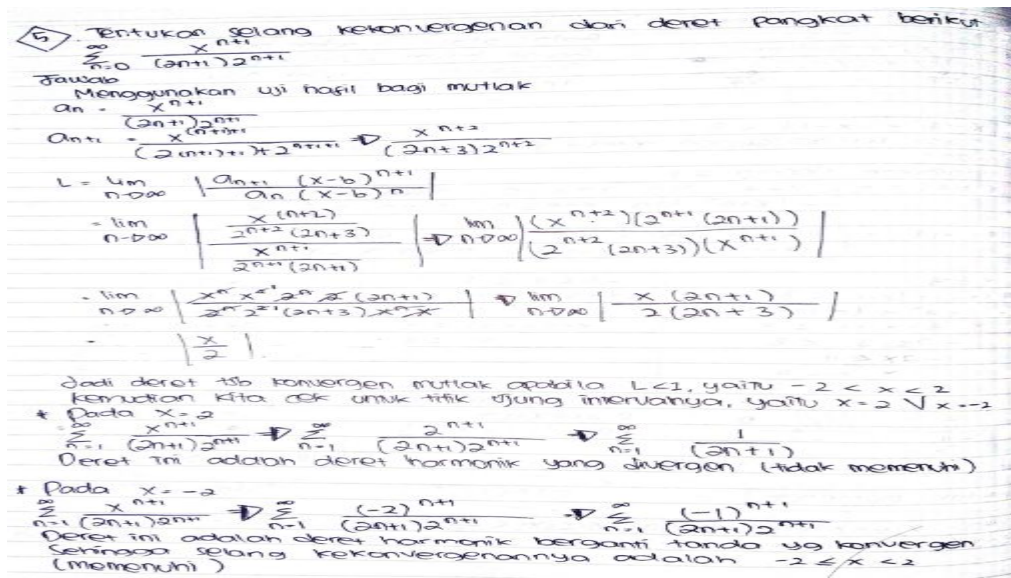 5 Tentukan selang kekonvergenan dari deret pangkat berikut
∞ Σ n=0 x^(n+1) / (2n+1) 2^(n+1)
Jawab
Menggunakan uji hasil bagi mutlak
an = x^(n+1) / (2n+1) 2^(n+1)
an+1 = x^((n+1)+1) / (2(n+1)+1)+2^(n+1+1) ⇒ x^(n+2) / (2n+3) 2^(n+2)
L = lim n→∞ | an+1 (x-b)^(n+1) / an (x-b)^n |
= lim n→∞ | x^(n+2) / 2^(n+2) (2n+3) / x^(n+1) / 2^(n+1) (2n+1) | ⇒ lim n→∞ | (x^(n+2)) (2^(n+1) (2n+1)) / (2^(n+2) (2n+3)) (x^(n+1)) |
= lim n→∞ | x^n x^2 2^n 2 (2n+1) / 2^n 2^2 (2n+3) x^n x | ⇒ lim n→∞ | x (2n+1) / 2 (2n+3) |
= | x / 2 |
Jadi deret tsb konvergen mutlak apabila L<1, yaitu -2 < x < 2
Kemudian kita cek untuk titik ujung intervalnya, yaitu x = 2 V x = -2
* Pada x = 2
∞ Σ n=1 x^(n+1) / (2n+1) 2^(n+1) ⇒ ∞ Σ n=1 2^(n+1) / (2n+1) 2^(n+1) ⇒ ∞ Σ n=1 1 / (2n+1)
Deret ini adalah deret harmonik yang divergen (tidak memenuhi)
* Pada x = -2
∞ Σ n=1 x^(n+1) / (2n+1) 2^(n+1) ⇒ ∞ Σ n=1 (-2)^(n+1) / (2n+1) 2^(n+1) ⇒ ∞ Σ n=1 (-1)^(n+1) / (2n+1) 2^(n+1)
Deret ini adalah deret harmonik berganti tanda yg konvergen
Sehingga selang kekonvergenannya adalah -2 ≤ x < 2
(memenuhi)